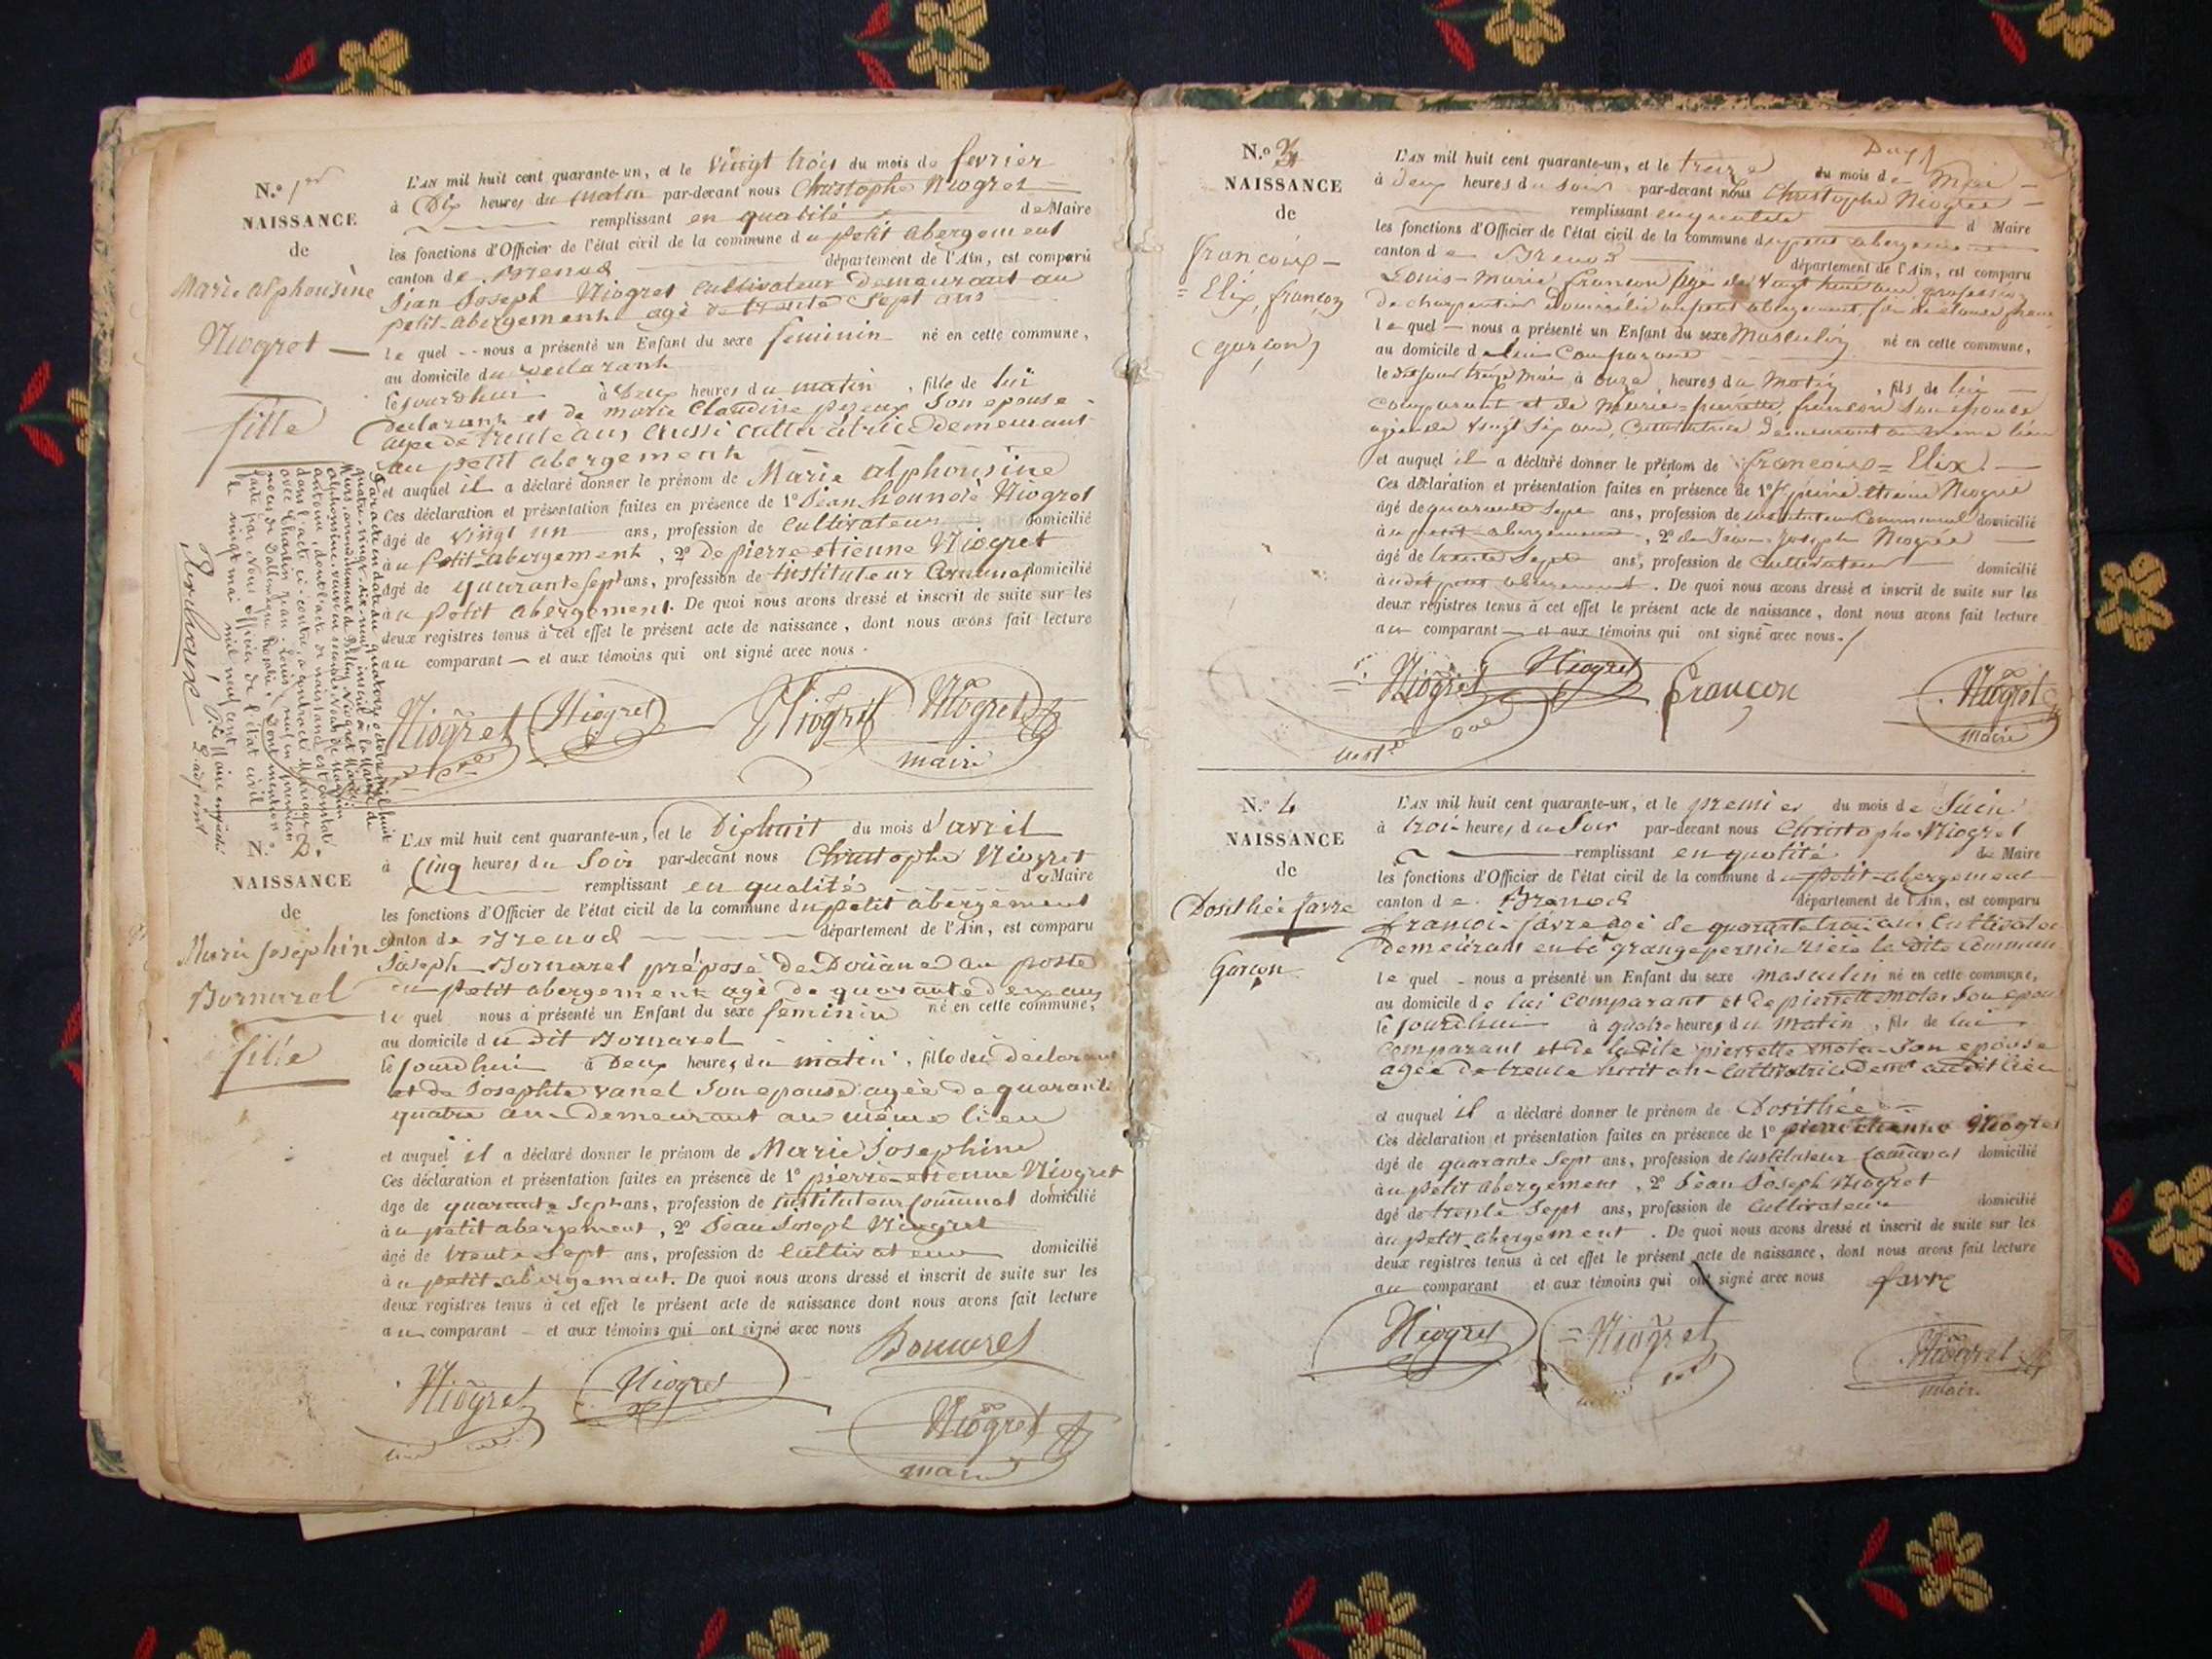 N.o 1er
NAISSANCE
de
Marie alphonsine
Niogret
fille
L'AN mil huit cent quarante-un, et le vingt trois du mois de fevrier
à Dix heures du matin par-devant nous Christophe Niogret
remplissant en qualité de Maire
les fonctions d'Officier de l'état civil de la commune du petit abergement
canton de Brenod département de l'Ain, est comparu
Jean Joseph Niogret cultivateur demeurant au
petit-abergement agé de trente sept ans
le quel nous a présenté un Enfant du sexe feminin né en cette commune,
au domicile du declarant
le jourdhui à Deux heures du matin, fille de lui
declarant et de marie Claudine son epouse
agée de trente ans aussi cultivatrice demeurant
au petit abergement
et auquel il a déclaré donner le prénom de Marie alphonsine
Ces déclaration et présentation faites en présence de 1o Jean Niogret
âgé de vingt un ans, profession de cultivateur domicilié
à u petit-abergement, 2o de pierre etienne Niogret
âgé de quarante sept ans, profession de instituteur Communal domicilié
à u petit abergement. De quoi nous avons dressé et inscrit de suite sur les
deux registres tenus à cet effet le présent acte de naissance, dont nous avons fait lecture
au comparant et aux témoins qui ont signé avec nous.
Niogret Niogret Niogret Niogret
maire
N.o 2.
NAISSANCE
de
Marie Josephine
Bornarel
fille
L'AN mil huit cent quarante-un, et le Dix huit du mois d'avril
à Cinq heures du Soir par-devant nous Christophe Niogret
remplissant en qualité de Maire
les fonctions d'Officier de l'état civil de la commune du petit abergement
canton de Brenod département de l'Ain, est comparu
Joseph Bornarel préposé de Douane au poste
du petit abergement agé de quarante deux ans
le quel nous a présenté un Enfant du sexe feminin né en cette commune,
au domicile du dit Bornarel
le jourdhui à Deux heures du matin, fille du declarant
et de Josephte vanel son epouse agée de quarante
quatre ans demeurant au même lieu
et auquel il a déclaré donner le prénom de Marie Josephine
Ces déclaration et présentation faites en présence de 1o pierre-etienne Niogret
âge de quarante sept ans, profession de instituteur Communal domicilié
à u petit abergement, 2o Jean Joseph Niogret
âgé de trente sept ans, profession de cultivateur domicilié
à u petit abergement. De quoi nous avons dressé et inscrit de suite sur les
deux registres tenus à cet effet le présent acte de naissance dont nous avons fait lecture
au comparant et aux témoins qui ont signé avec nous
Niogret Niogret Bornarel
Niogret
maire
N.o 3
NAISSANCE
de
francois
Elix, francon
(garçon)
L'AN mil huit cent quarante-un, et le treize du mois de Mai
à deux heures du soir par-devant nous Christophe Niogret
remplissant en qualité d Maire
les fonctions d'Officier de l'état civil de la commune du petit abergement
canton de Brenod département de l'Ain, est comparu
Louis-Marie francon agé de vingt huit ans, profession
de charpentier domicilié au petit abergement,
le quel nous a présenté un Enfant du sexe Masculin né en cette commune,
au domicile de lui Comparant
le dit jour treize mai à onze heures du Matin, fils de lui
comparant et de Marie-pierrette francon son epouse
agée de vingt six ans, Cultivatrice demeurant au même lieu
et auquel il a déclaré donner le prénom de francois = Elix.
Ces déclaration et présentation faites en présence de 1o pierre etienne Niogret
âgé de quarante sept ans, profession de instituteur Communal domicilié
à u petit abergement, 2o de Jean Joseph Niogret
âgé de trente Sept ans, profession de Cultivateur domicilié
à u dit petit abergement. De quoi nous avons dressé et inscrit de suite sur les
deux registres tenus à cet effet le présent acte de naissance, dont nous avons fait lecture
au comparant et aux témoins qui ont signé avec nous.
Niogret Niogret francon Niogret
maire
N.o 4
NAISSANCE
de
Dosithée favre
Garçon
L'AN mil huit cent quarante-un, et le premier du mois de Juin
à trois heures du Soir par-devant nous Christophe Niogret
remplissant en qualité de Maire
les fonctions d'Officier de l'état civil de la commune du petit-abergement
canton de Brenod département de l'Ain, est comparu
francois favre agé de quarante trois ans Cultivateur
demeurant la dite commune
le quel nous a présenté un Enfant du sexe masculin né en cette commune,
au domicile de lui comparant et de pierrette son epouse
le jourdhui à quatre heures du matin, fils de lui
comparant et de la dite pierrette son epouse
agée de trente huit ans Cultivatrice demt audit lieu
et auquel il a déclaré donner le prénom de Dosithée
Ces déclaration et présentation faites en présence de 1o pierre etienne Niogret
âgé de quarante Sept ans, profession de instituteur Communal domicilié
à u petit abergement, 2o Jean Joseph Niogret
âgé de trente Sept ans, profession de Cultivateur domicilié
à u petit abergement. De quoi nous avons dressé et inscrit de suite sur les
deux registres tenus à cet effet le présent acte de naissance, dont nous avons fait lecture
au comparant et aux témoins qui ont signé avec nous favre
Niogret Niogret Niogret
maire